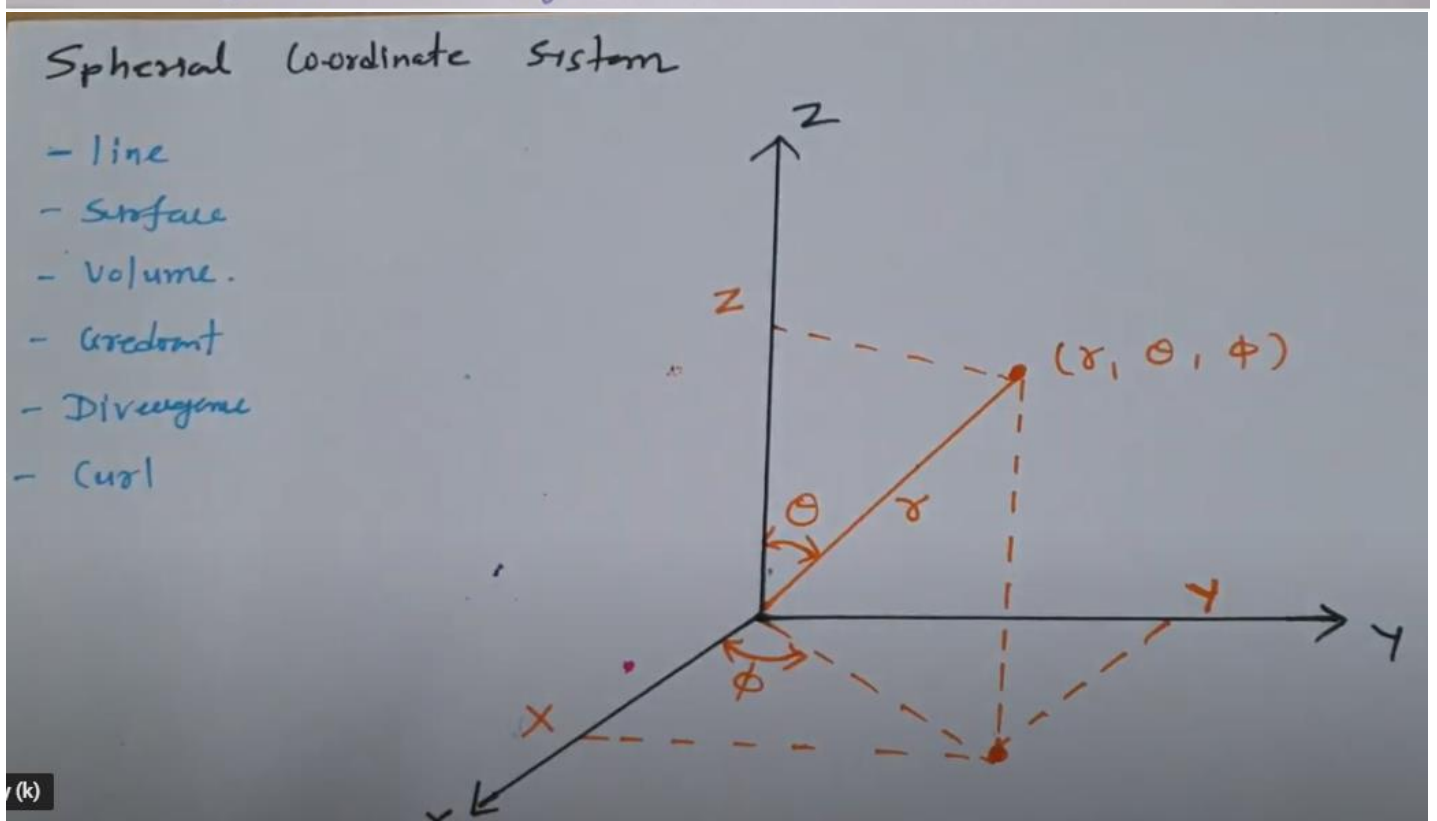 Spherial Co-ordinate Sistem
- line
- Surface
- Volume.
- Gredomt
- Divergence
- Curl
Z
Z
(r, θ, φ)
θ
r
Y
Y
φ
X
(k)